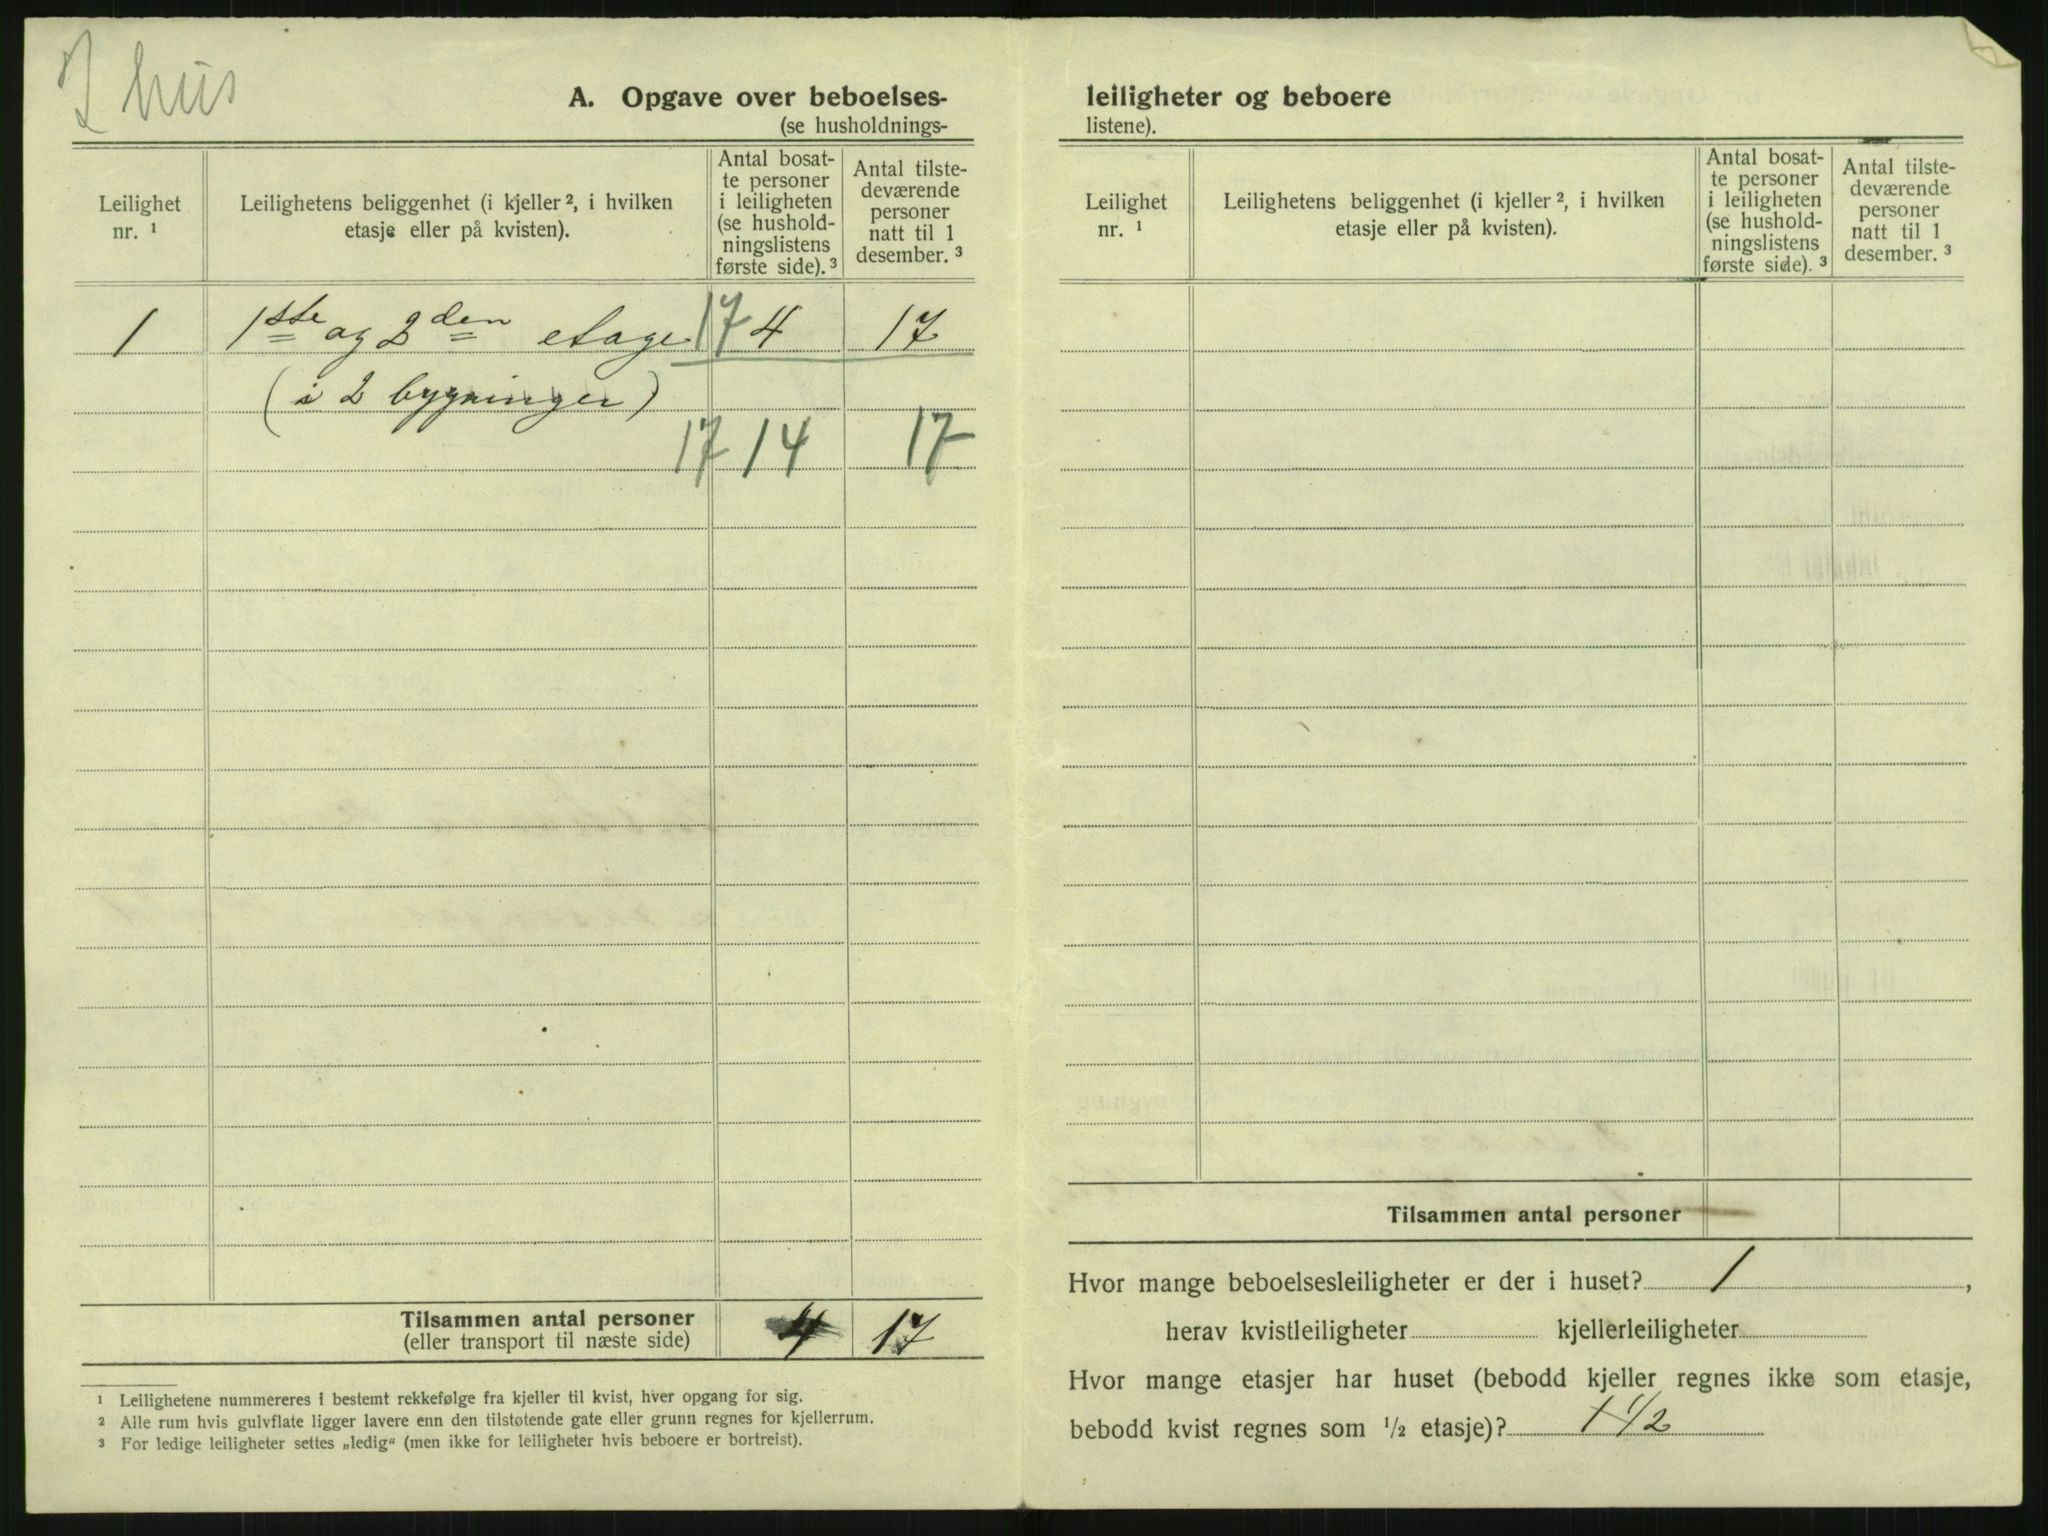 2 hus
A. Opgave over beboelses-
(se husholdnings-
Leilighet nr. ¹
Leilighetens beliggenhet (i kjeller ², i hvilken etasje eller på kvisten).
Antal bosat-
te personer
i leiligheten
(se hushold-
ningslistens
første side). ³
Antal tilste-
deværende
personer
natt til 1
desember. ³
1 1ste og 2den etage 17 4 17
(i 2 bygninger)
17 14 17
Tilsammen antal personer 4 17
(eller transport til næste side)
¹ Leilighetene nummereres i bestemt rekkefølge fra kjeller til kvist, hver opgang for sig.
² Alle rum hvis gulvflate ligger lavere enn den tilstøtende gate eller grunn regnes for kjellerrum.
³ For ledige leiligheter settes „ledig“ (men ikke for leiligheter hvis beboere er bortreist).
leiligheter og beboere
listene).
Leilighet nr. ¹
Leilighetens beliggenhet (i kjeller ², i hvilken etasje eller på kvisten).
Antal bosat-
te personer
i leiligheten
(se hushold-
ningslistens
første side). ³
Antal tilste-
deværende
personer
natt til 1
desember. ³
Tilsammen antal personer
Hvor mange beboelsesleiligheter er der i huset? 1 ,
herav kvistleiligheter kjellerleiligheter
Hvor mange etasjer har huset (bebodd kjeller regnes ikke som etasje,
bebodd kvist regnes som ½ etasje)? 1½